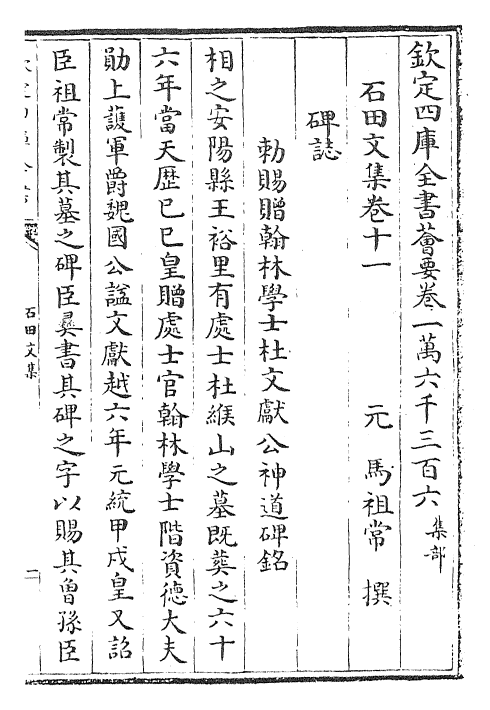 欽定四庫全書薈要卷一萬六千三百六 集部
石田文集卷十一 元 馬祖常 撰
碑誌
勅賜贈翰林學士杜文獻公神道碑銘
相之安陽縣王裕里有處士杜緱山之墓既葬之六十
六年當天歷已巳皇贈處士官翰林學士階資德大夫
勛上護軍爵魏國公諡文獻越六年元統甲戌皇又詔
臣祖常製其墓之碑臣彞書其碑之字以賜其曾孫臣
石田文集
一